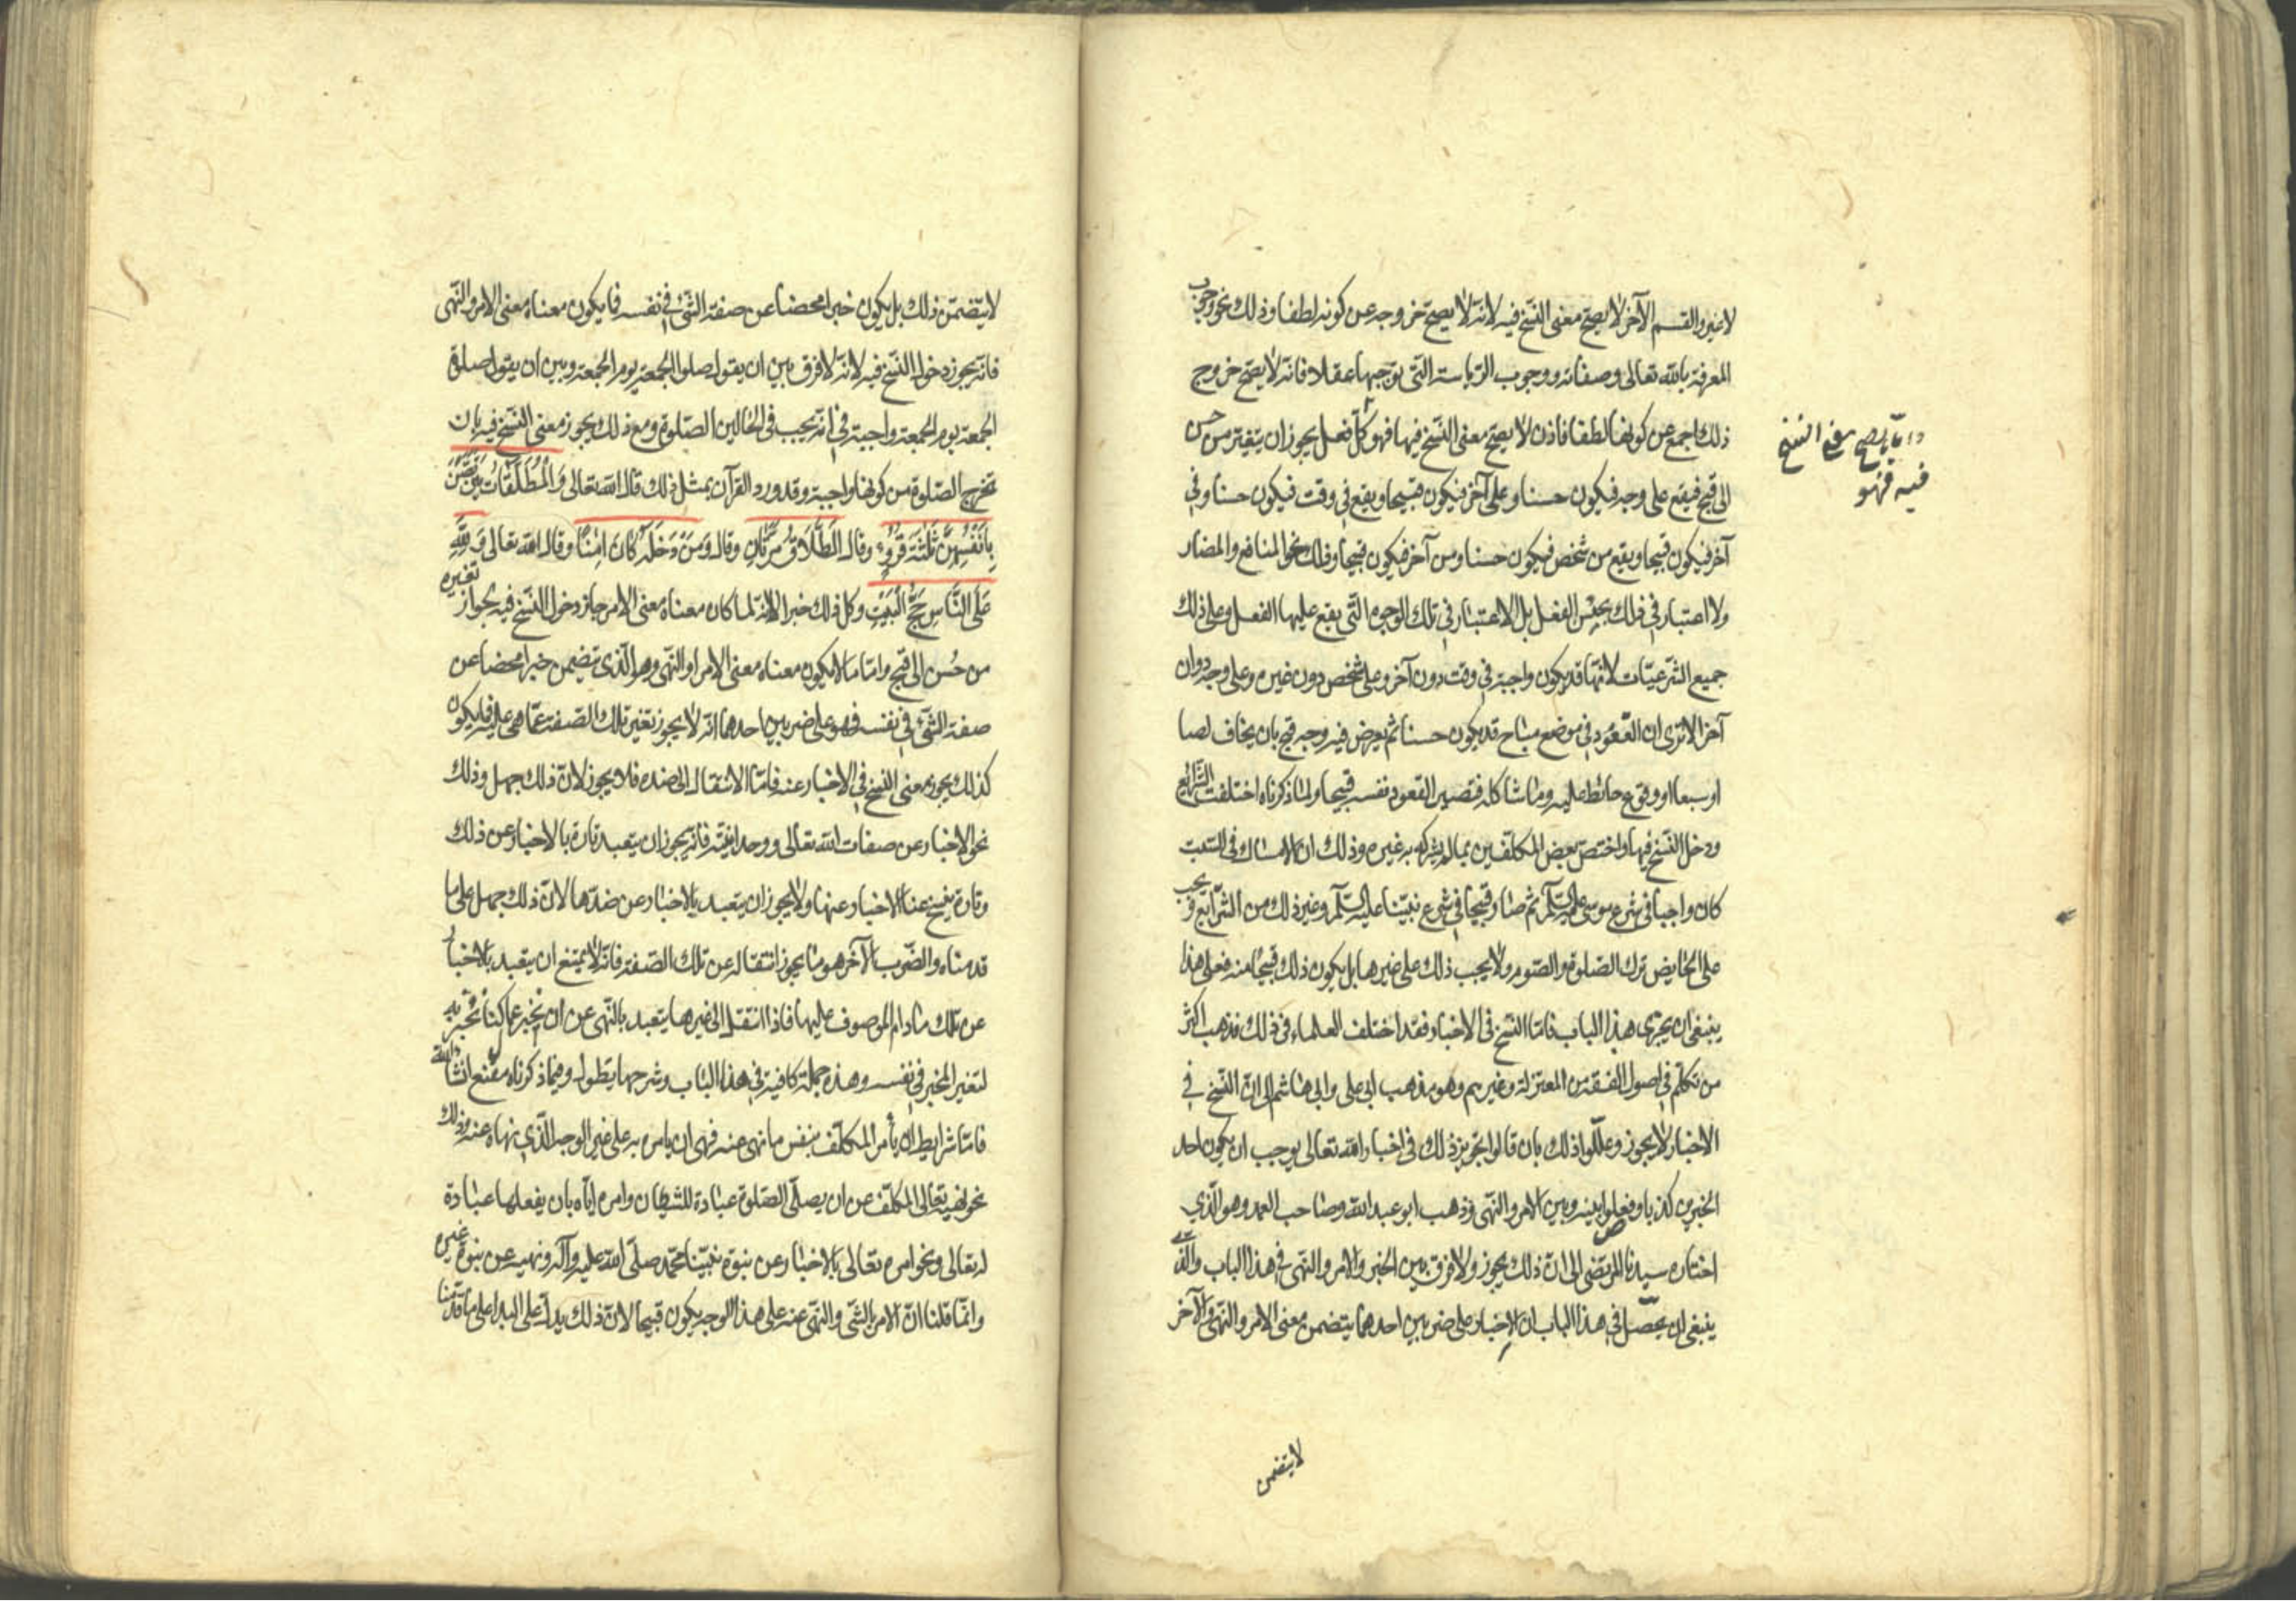 لا غير والقسم الآخر لا يصح معنى النسخ فيه لانه لا يصح خروجه عن كونه لطفا وذلك نحو وجوب
المعرفة بالله تعالى وصفاته ووجوب الرياسة التى توجبها عقلا فانه لا يصح خروج
ذلك اجمع عن كونها لطفا فاذن لا يصح معنى النسخ فيها فهو كل فعل يجوز ان يتغير من حسن
واما ما يصح معنى النسخ
فيه فهو
الى قبح فيقع على وجه فيكون حسنا وعلى آخر فيكون قبيحا ويقع فى وقت فيكون حسنا وفى
آخر فيكون قبيحا ويقع من شخص فيكون حسنا ومن آخر فيكون قبيحا وذلك نحو المنافع والمضار
ولا اعتبار فى ذلك بجنس الفعل بل الاعتبار فى تلك الوجوه التى يقع عليها الفعل وعلى ذلك
جميع الشرعيات لانها قد يكون واجبة فى وقت دون آخر وعلى شخص دون غيره وعلى وجه دوان
آخر الا ترى ان القعود فى موضع مباح قد يكون حسنا ثم يعرض فيه وجه قبح بان يخاف لصا
او سبعا او وقوع حائط عليه وما شاكله فتصير القعود نفسه قبيحا ولما ذكرناه اختلفت الشرايع
ودخل النسخ فيها واختص بعض المكلفين بما لم يشركه به غيره وذلك ان الامساك فى السبت
كان واجبا فى شرع موسى عليه السلم ثم صار قبيحا فى شرع نبينا عليه السلم وغير ذلك من الشرايع ويجب
على الحايض ترك الصلوة والصوم ولا يجب ذلك على غيرها بل يكون ذلك قبيحا منه فعلى هذا
ينبغى ان يجرى هذا الباب فاما النسخ فى الاخبار فقد اختلف العلماء فى ذلك فذهب اكثر
من تكلم فى اصول الفقه من المعتزلة وغيرهم وهو مذهب ابى على وابى هاشم الى ان النسخ فى
الاخبار لا يجوز وعللوا ذلك بان قالوا تجويز ذلك فى اخبار الله تعالى يوجب ان يكون احد
الخبرين كذبا وفصلوا بينه وبين الامر والنهى وذهب ابو عبد الله وصاحب العمد وهو الذي
اختاره سيدنا المرتضى الى ان ذلك يجوز ولا فرق بين الخبر والامر والنهى فى هذا الباب والذى
ينبغى ان يحصل فى هذا الباب ان الاخبار على ضربين احدهما يتضمن معنى الامر والنهى والآخر
لا يتضمن
لا يتضمن ذلك بل يكون خبرا محضا عن صفة الشئ فى نفسه فما يكون معناه معنى الامر والنهى
فانه يجوز دخول النسخ فيه لانه لا فرق بين ان يقول صلوا الجمعة يوم الجمعة وبين ان يقول صلوة
الجمعة يوم الجمعة واجبة فى انه يجب فى الحالين الصلوة ومع ذلك يجوز معنى النسخ فيه بان
تخرج الصلوة من كونها واجبة وقد ورد القرآن بمثل ذلك قال الله تعالى وَالْمُطَلَّقَاتُ يَتَرَبَّصْنَ
بِأَنْفُسِهِنَّ ثَلٰثَةَ قُرُوءٍ وقال الطَّلَاقُ مَرَّتَانِ وقال وَمَنْ دَخَلَهُ كَانَ اٰمِنًا وقال الله تعالى وَلِلّٰهِ
عَلَى النَّاسِ حَجُّ الْبَيْتِ وكل ذلك خبر الا انه لما كان معناه معنى الامر جاز دخول النسخ فيه بجواز تغيره
من حسن الى قبح واما ما لا يكون معناه معنى الامر او النهى وهو الذى تضمن خبرا محضا عن
صفة الشئ فى نفسه فهو على ضربين احدهما انه لا يجوز تغير تلك الصفة عما هى عليه فما يكون
كذلك يجوز معنى النسخ فى الاخبار عنه فاما الانتقال الى ضده فلا يجوز لان ذلك جهل وذلك
نحو الاخبار عن صفات الله تعالى ووحدانيته فانه يجوز ان يتعبد تارة بالاخبار عن ذلك
وتارة ينسخ عنا الاخبار عنها ولا يجوز ان يتعبد بالاخبار عن ضدها لان ذلك جهل على ما
قدمناه والضرب الآخر هو ما يجوز انتقاله عن تلك الصفة فانه لا يمتنع ان يتعبد بالاخبار
عن تلك ما دام الموصوف عليها فاذا انتقل الى غيرها يتعبد بالنهى عن ان نخبر عما كنا نخبر به
لتغير المخبر فى نفسه وهذه جملة كافية فى هذا الباب وشرحها يطول وفيما ذكرناه مقنع انشا الله
فاما شرايط ان يأمر المكلف بنفس ما نهى عنه فهى ان يامره به على غير الوجه الذى نهاه عنه وذلك
نحو نهيه تعالى المكلف عن ان يصلى الصلوة عبادة للشيطان وامره اياه بان يفعلها عبادة
له تعالى ونحو امره تعالى بالاخبار عن نبوة نبينا محمد صلى الله عليه وآله ونهيه عن نبوة غيره
وانما قلنا ان الامر بالشئ والنهى عنه على هذا الوجه يكون قبيحا لان ذلك يدل على البداء على ما قدمنا